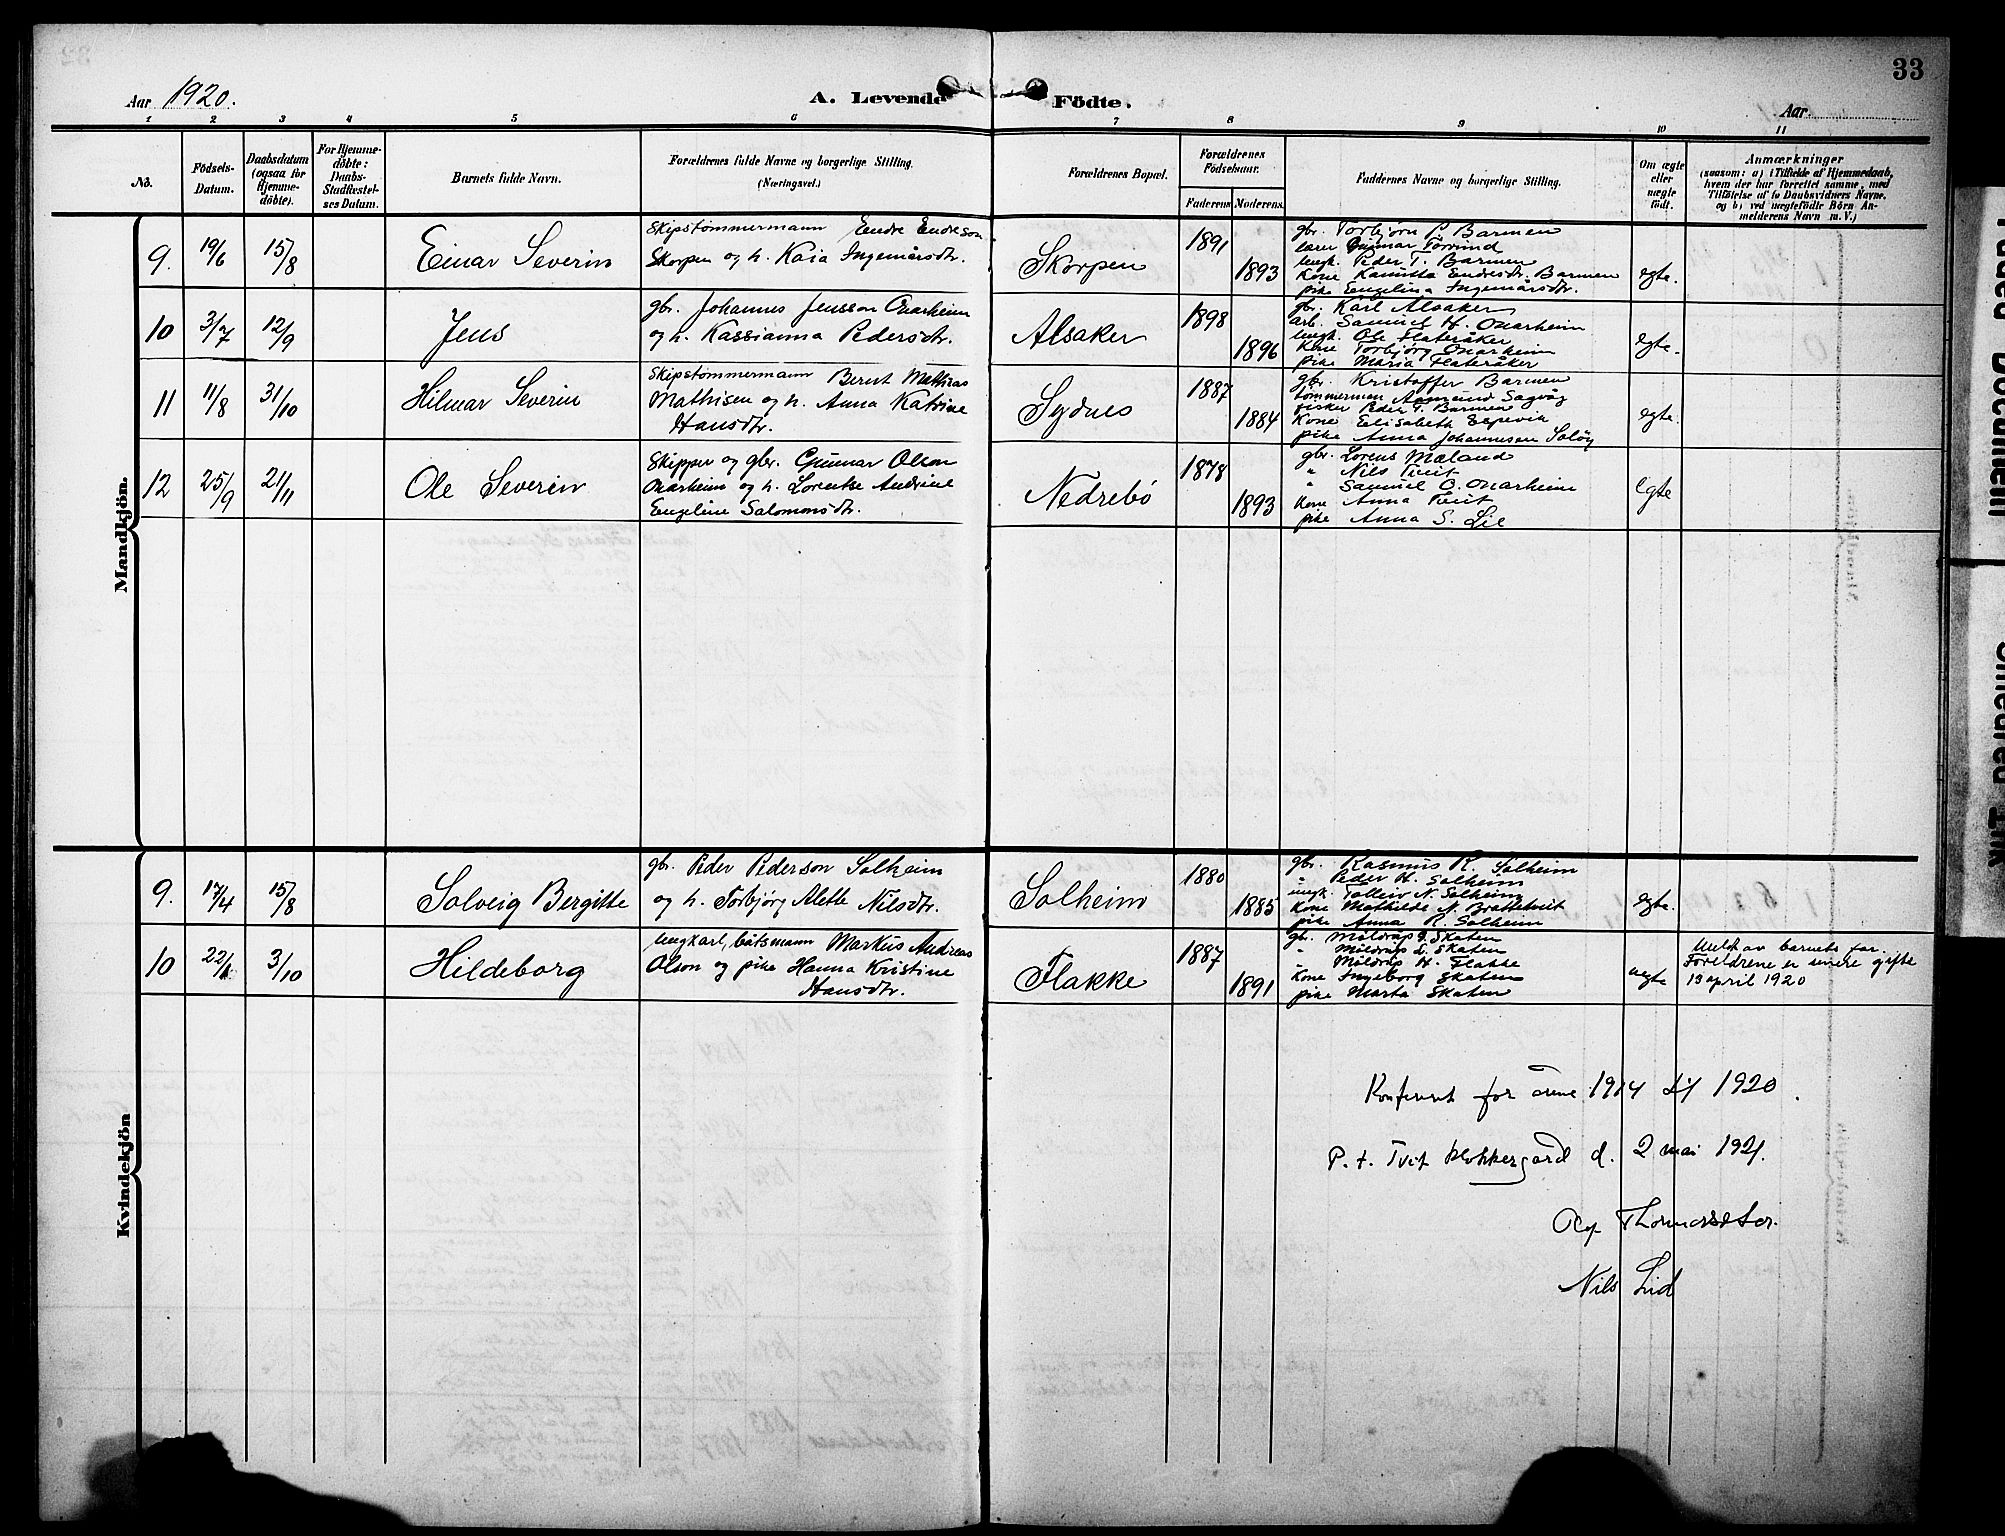 33
Aar 1920.
A. Levende Födte.
Aar
1 2 3 4 5 6 7 8 9 10 11
No.
Födsels-Datum.
Daabsdatum (ogsaa for Hjemme-döbte).
For Hjemme-döbte: Daabs-Stadfæstel-ses Datum.
Barnets fulde Navn.
Forældrenes fulde Navne og borgerlige Stilling. (Næringsvei.)
Forældrenes Bopæl.
Forældrenes Födselsaar.
Faderens Moderens
Faddernes Navne og borgerlige Stilling.
Om ægte eller uægte födt.
Anmærkninger
(saasom: a) i Tilfælde af Hjemmedaab,
hvem der har forrettet samme, med
Tilföielse af to Daabsvidners Navne,
og b) ved uægtefödte Börn An-
melderens Navn m. V.)
Mandkjön.
9. 19/6 15/8 Einar Severin
Skipstømmermann Endre Endreson
Skorpen og h. Kaia Ingemårsdtr.
Skorpen 1891 1893
gbr. Torbjørn P. Barmen
lærer Gunnar Torvund
ungk. Peder T. Barmen
Kone Kamilla Endresdr. Barmen
pike Engelina Ingemårsdtr.
egte.
10 3/7 12/9 Jens
gbr. Johannes Jensson Onarheim
og h. Kassianna Pedersdtr.
Alsaker 1898 1896
gbr. Karl Alsaker
arb. Samuel H. Onarheim
ungk. Ole Flateråker
Kone Torbjørg Onarheim
pike Maria Flateråker
egte.
11 11/8 31/10 Hilmar Severin
Skipstømmermann Bernt Mathias
Mathisen og h. Anna Katrine
Hansdtr.
Sydnes 1887 1884
gbr. Kristoffer Barmen
tømmerman Aamund Sagvåg
fisker Peder T. Barmen
Kone Elisabeth
pike Anna Johannesen
egte.
12 25/9 21/11 Ole Severin
Skipper og gbr. Gunnar Olson
Onarheim og h. Lorentse Andrine
Engeline Salomonsdtr.
Nedrebö 1878 1893
gbr. Lorens Mæland
" Nils Tveit
" Samuel O. Onarheim
Kone Anna Tveit
pike Anna S. Lie
Egte
Kvindekjön
9. 17/4 15/8 Solveig Bergitte
gbr. Peder Pederson Solheim
og h. Torbjörg Alette Nilsdtr.
Solheim 1880 1885
gbr. Rasmus R. Solheim
" Peder H. Solheim
ungk. Tolleiv N. Solheim
Kone Mathilde N. Brattetveit
pike Anna R. Solheim
egte.
10 22/1 3/10 Hildeborg
Ungkarl, båtsmann Markus Andreas
Olson og pike Hanna Kristine
Hansdtr.
Flakke 1887 1891
gb. Mildrap J. Skaten
" Mildrap L. Skaten
" Mildrap H. Flakke
Kone Ingeborg Skaten
pike Marta Skaten
uegte
Meldt av barnets far.
Foreldrene er senere gifte
13 april 1920
Konferert for årene 1914 til 1920.
P. t. Tveit Klokkergard d. 2 mai 1921.
Nils Lid